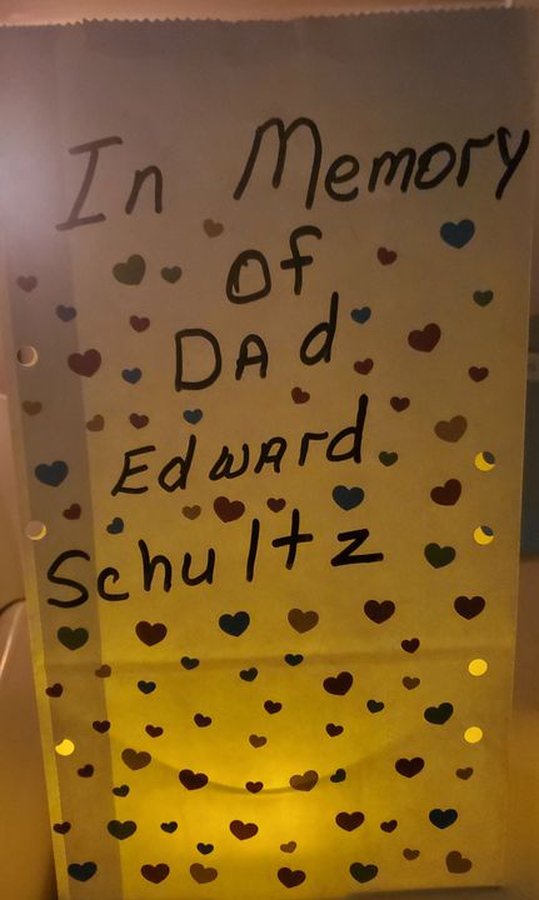 In Memory
of
DAd
EdwARd
Schultz